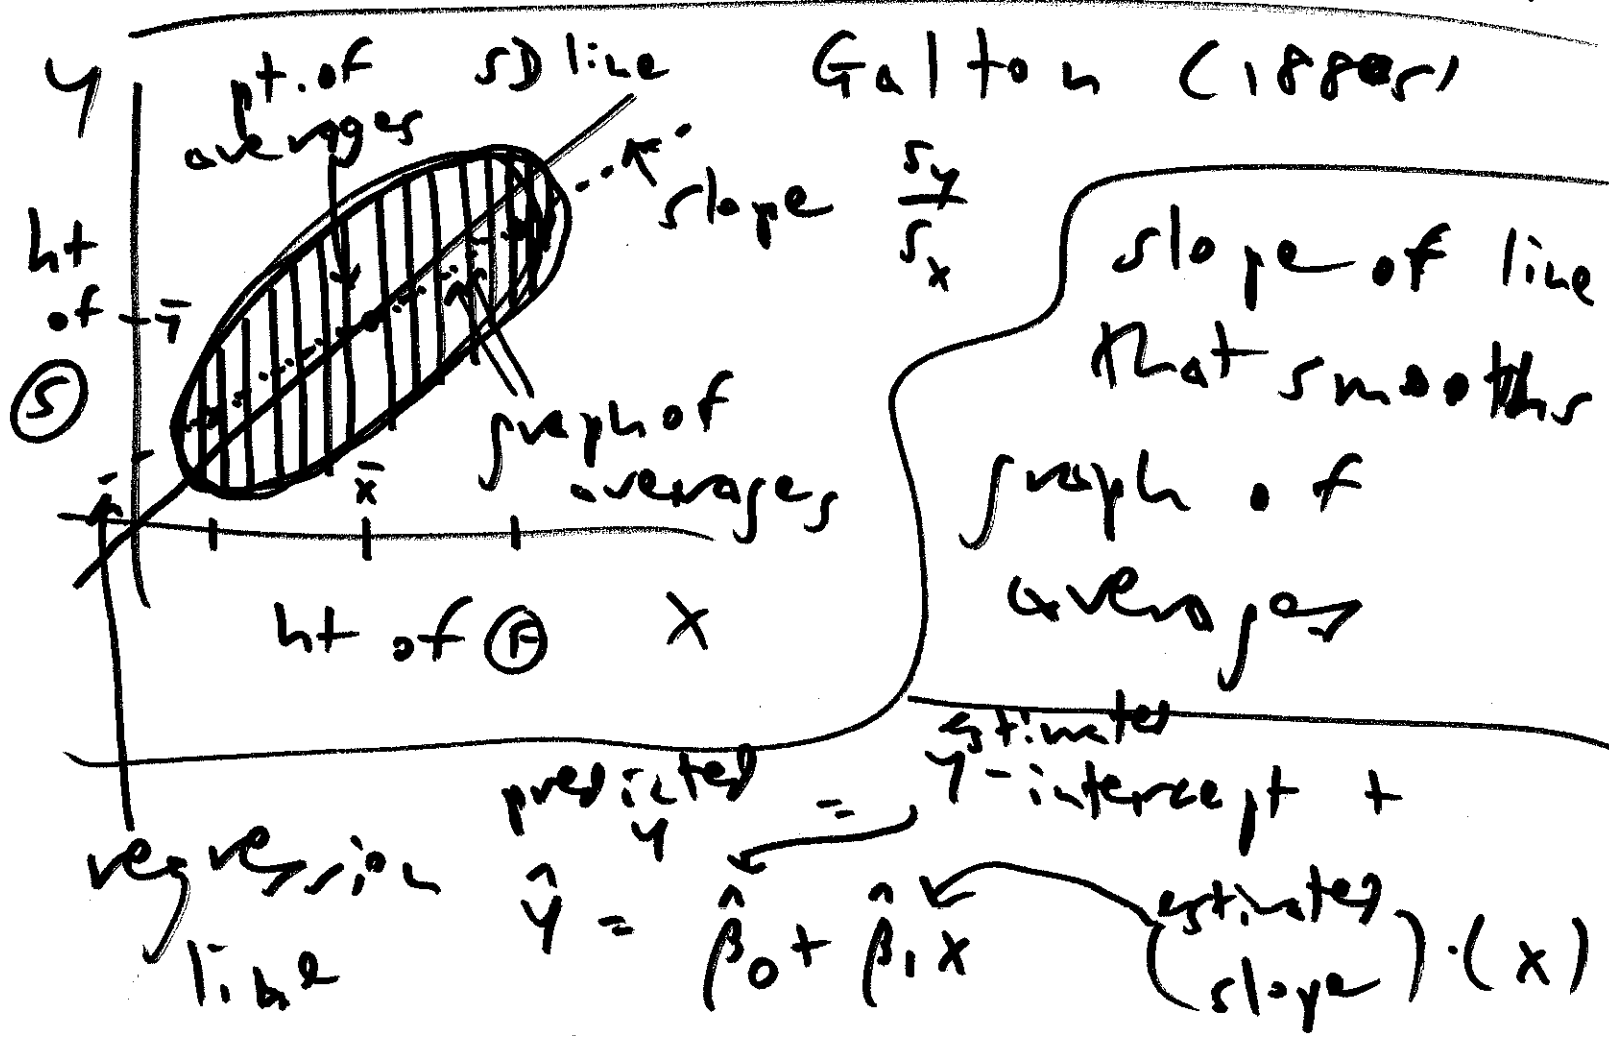 y
pt. of
averages
SD line
Galton (1880s)
slope s_y / s_x
ht
of
Ⓢ
ȳ
x̄
graph of
averages
ht of Ⓕ x
slope of line
that smooths
graph of
averages
regression
line
predicted y = estimated y-intercept +
(estimated slope) · (x)
ŷ = β̂₀ + β̂₁x